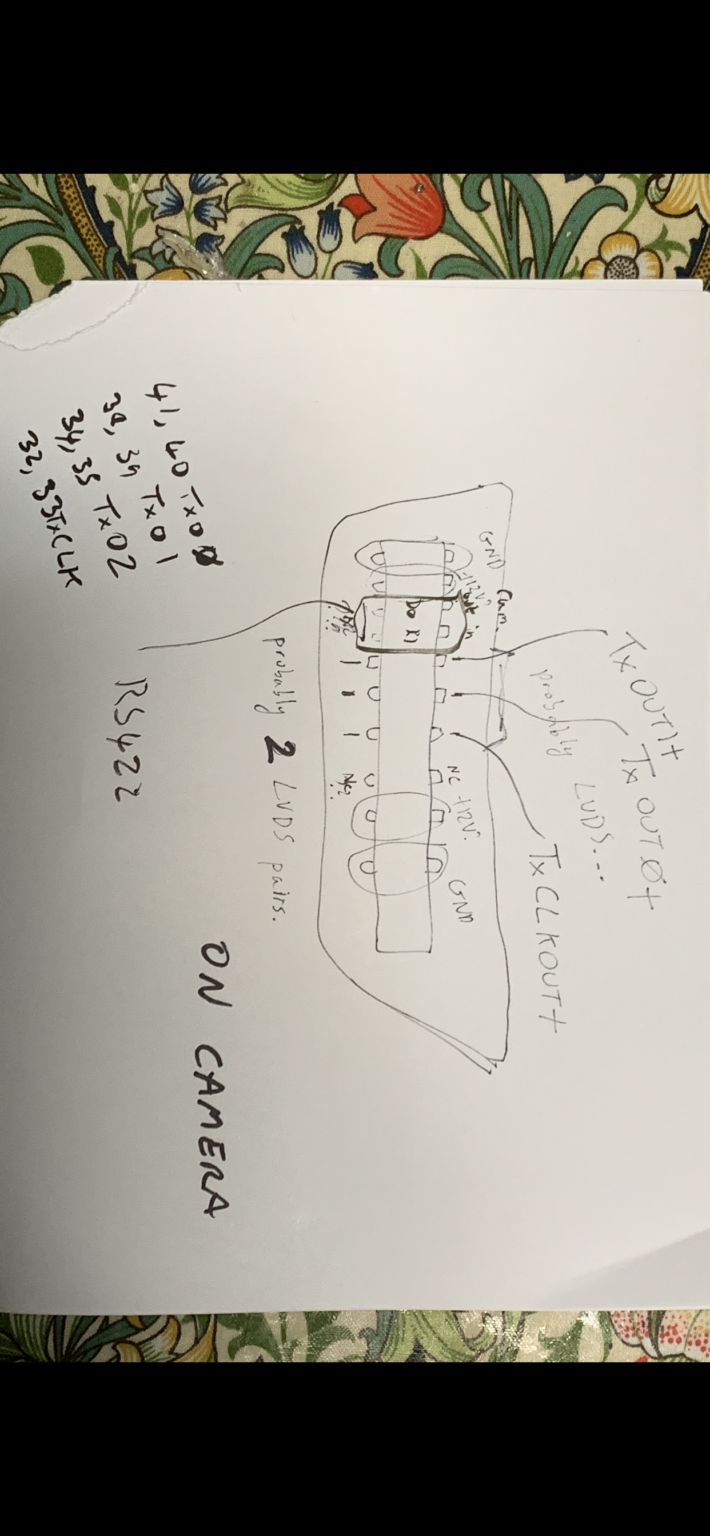 Tx OUT1+
Tx OUTØ+
probably LVDS...
TxCLKOUT+
Cam.
GND
+12V?
in
NC
+12V?
GND
probably 2 LVDS pairs.
ON CAMERA
RS422
41, 40 Tx0Ø
39 Tx01
34, 35 Tx02
32, 33 TxCLK